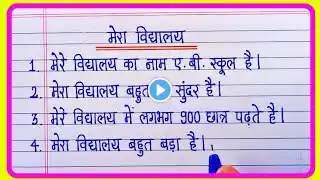 मेरा विद्यालय
1. मेरे विद्यालय का नाम ए.बी. स्कूल है।
2. मेरा विद्यालय बहुत सुंदर है।
3. मेरे विद्यालय में लगभग 900 छात्र पढ़ते है।
4. मेरा विद्यालय बहुत बड़ा है।